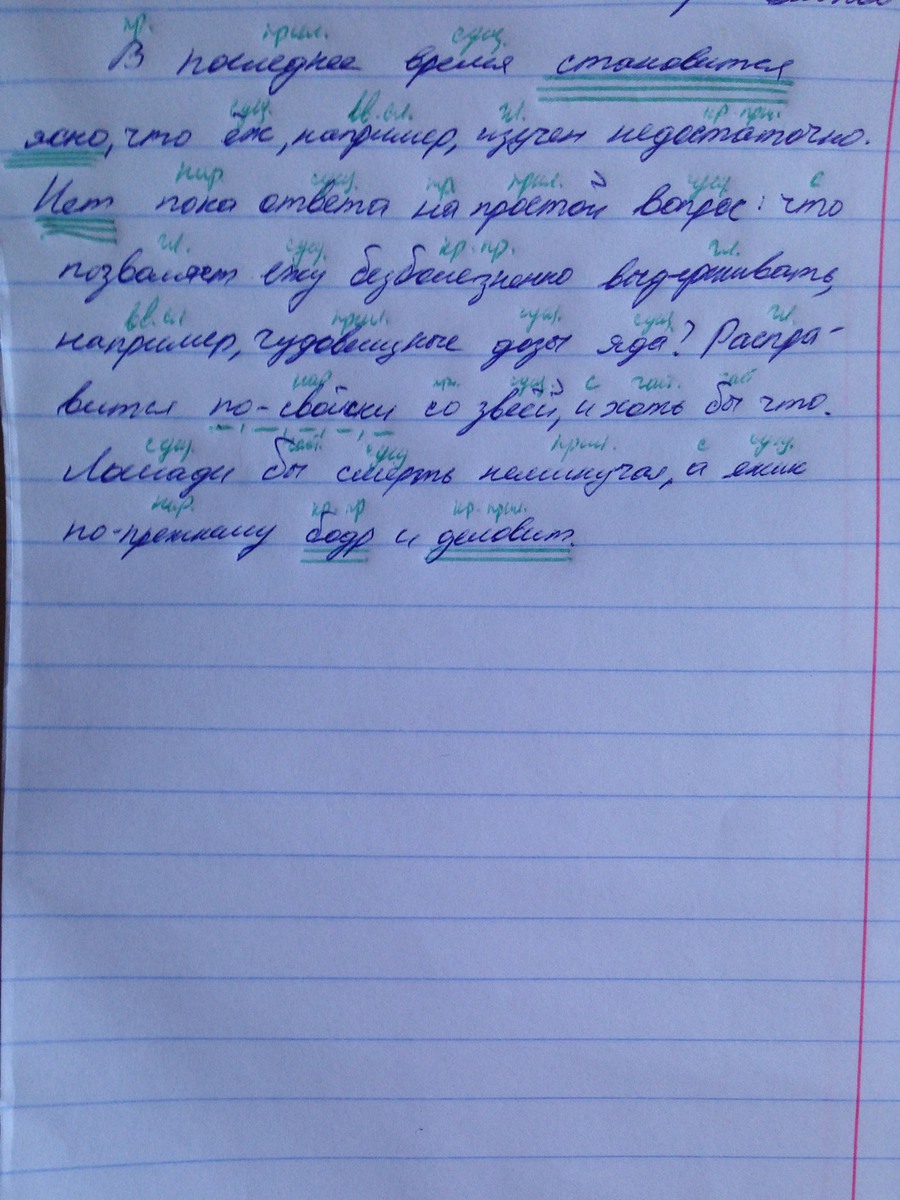 пр. прил. сущ.
В последнее время становится
сущ. вв. сл. гл. кр. прил.
ясно, что ёж, например, изучен недостаточно.
нар. сущ. пр. прил. сущ. с
Нет пока ответа на простой вопрос: что
гл. сущ. кр. пр. гл.
позволяет ежу безболезненно выдерживать,
вв. сл прил. сущ. сущ. гл.
например, чудовищные дозы яда? Распра-
нар. пр. сущ. с част. част
вится по-свойски со змеёй, и хоть бы что.
сущ. част. сущ прил. с сущ.
Лошади бы смерть неминучая, а ёжик
нар. кр. пр кр. прил.
по-прежнему бодр и деловит.